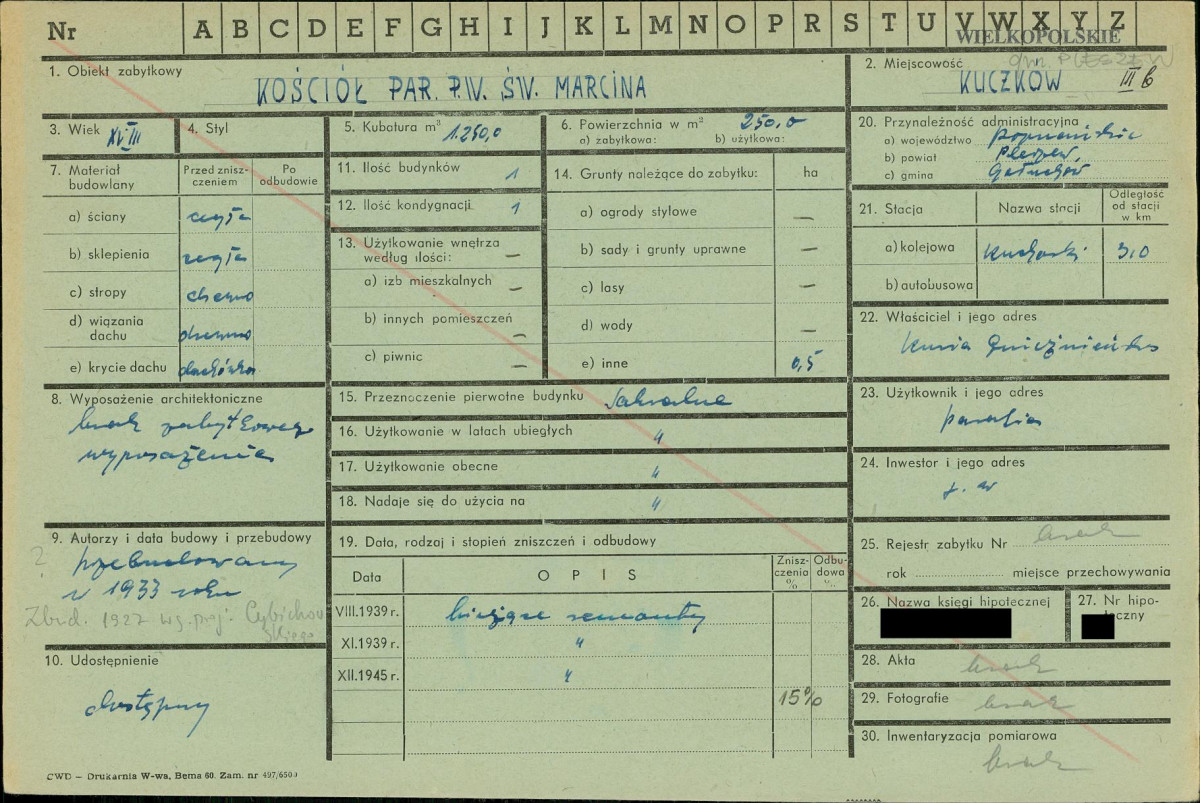 Nr A B C D E F G H I J K L M N O P R S T U V W X Y Z
WIELKOPOLSKIE
gm. PLESZEW
1. Obiekt zabytkowy
KOŚCIÓŁ PAR. P.W. ŚW. MARCINA
2. Miejscowość
KUCZKÓW III b
3. Wiek XVIII
4. Styl
5. Kubatura m³ 1.250,0
6. Powierzchnia w m² 250,0
a) zabytkowa: b) użytkowa:
20. Przynależność administracyjna
a) województwo poznańskie
b) powiat Pleszew,
c) gmina Gołuchów
7. Materiał budowlany
Przed znisz-
czeniem
Po
odbudowie
a) ściany cegła
b) sklepienia cegła
c) stropy drewno
d) wiązania
dachu drewno
e) krycie dachu dachówka
11. Ilość budynków 1
12. Ilość kondygnacji 1
13. Użytkowanie wnętrza
według ilości: —
a) izb mieszkalnych —
b) innych pomieszczeń —
c) piwnic —
14. Grunty należące do zabytku: ha
a) ogrody stylowe —
b) sady i grunty uprawne —
c) lasy —
d) wody —
e) inne 0,5
21. Stacja
Nazwa stacji
Odległość
od stacji
w km
a) kolejowa Kucharki 3,0
b) autobusowa
22. Właściciel i jego adres
Kuria Gnieźnieńska
8. Wyposażenie architektoniczne
brak zabytkowego
wyposażenia
15. Przeznoczenie pierwotne budynku Sakralne
16. Użytkowanie w latach ubiegłych "
17. Użytkowanie obecne "
18. Nadaje się do użycia na "
23. Użytkownik i jego adres
parafia
24. Inwestor i jego adres
j. w
9. Autorzy i data budowy i przebudowy
? przebudowany
w 1933 roku
Zbud. 1927 wg. proj. Cybichow
skiego
19. Data, rodzaj i stopień zniszczeń i odbudowy
Data
O P I S
Znisz-
czenia
%
Odbu-
dowa
%
VIII.1939 r. bieżące remonty
XI.1939 r. "
XII.1945 r. "
15%
25. Rejestr zabytku Nr brak
rok miejsce przechowywania
26. Nazwa księgi hipotecznej
27. Nr hipo-
teczny
10. Udostępnienie
dostępny
28. Akta brak
29. Fotografie brak
30. Inwentaryzacja pomiarowa
brak
CWD — Drukarnia W-wa, Bema 60. Zam. nr 497/6500